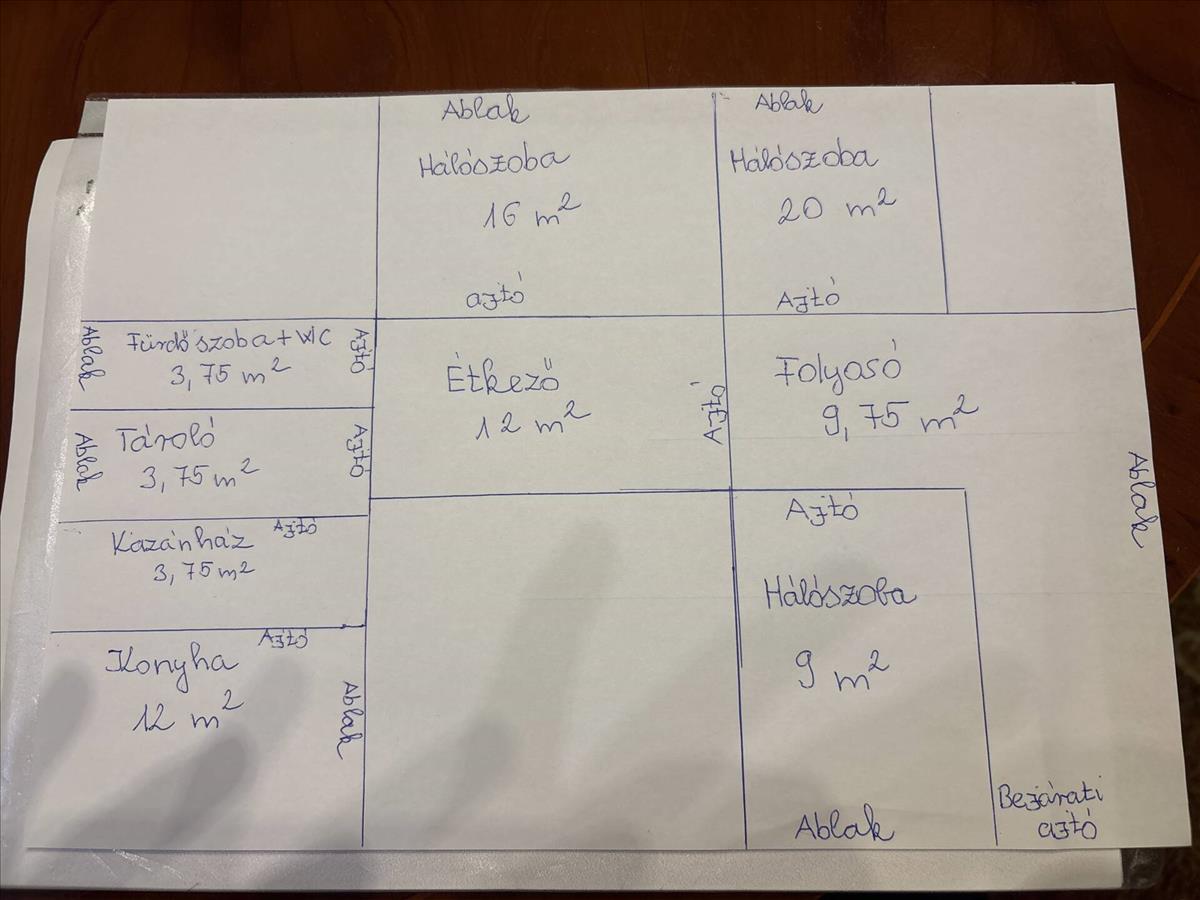 Ablak
Hálószoba
16 m²
ajtó
Ablak
Hálószoba
20 m²
Ajtó
Ablak
Fürdőszoba + WC
3,75 m²
Ajtó
Ablak
Tároló
3,75 m²
Ajtó
Kazánház
3,75 m²
Ajtó
Konyha
12 m²
Ajtó
Ablak
Étkező
12 m²
Ajtó
Folyosó
9,75 m²
Ablak
Ajtó
Hálószoba
9 m²
Ablak
Bejárati
ajtó